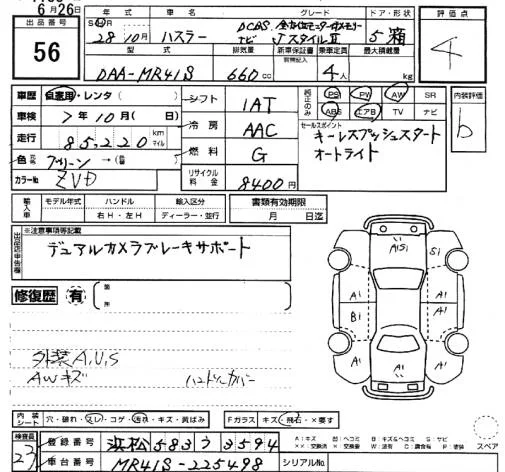 6月26日
出品番号
56
年式 車名 グレード ドア・形状
28年10月 ハスラー DCBS、全方位モニター用メモリー JスタイルⅡ 5 箱
型式 排気量 新車保証書 乗車定員 最大積載量
DAA-MR41S 660cc 4人 kg
評価点
4
車歴 自家用・レンタ( )
車検 7年10月(日)
走行 85,220 km マイル
色 グリーン → (色)
カラーNo. ZVD
シフト 1AT
冷房 AAC
燃料 G
リサイクル料金 8400円
純正のみ PS PW AW SR
ABS エアB TV ナビ
内装評価
b
セールスポイント
キーレスプッシュスタート
オートライト
輸入車 モデル年式 ハンドル 輸入区分 書類有効期限
右H・左H ディーラー・並行 月 日迄
出品店申告欄
※注意事項等記載
デュアルカメラブレーキサポート
修復歴 有 箇所
A1S1
A1 S1
A1 A1
B1 A1
A1 A1
外装A.U.S
AWキズ ハンドルカバー
内装シート 穴・破れ・スレ・コゲ・汚れ・キズ・黄ばみ Fガラス キズ・飛石・×要す
検査員
23
登録番号 浜松 583 う 3594
車台番号 MR41S-225498 シリアルNo.
A:キズ B:キズ&ヘコミ S:サビ
スペア